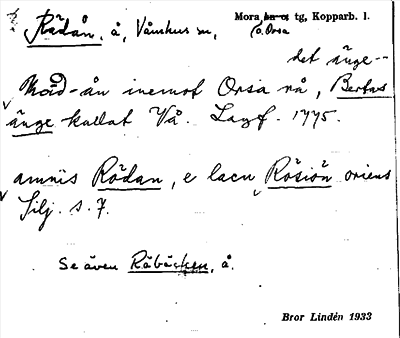 Rådån, å, Våmhus sn, Mora tg, Kopparb. l.
o. Orsa
det änge--
Råd-ån inemot Orsa rå, Bertas
änge kallat Vå. Lagf. 1775.
amnis Rödan, e lacu Rösiön oriens
Silj. s. 7.
Se även Råbäcken, å.
Bror Lindén 1933